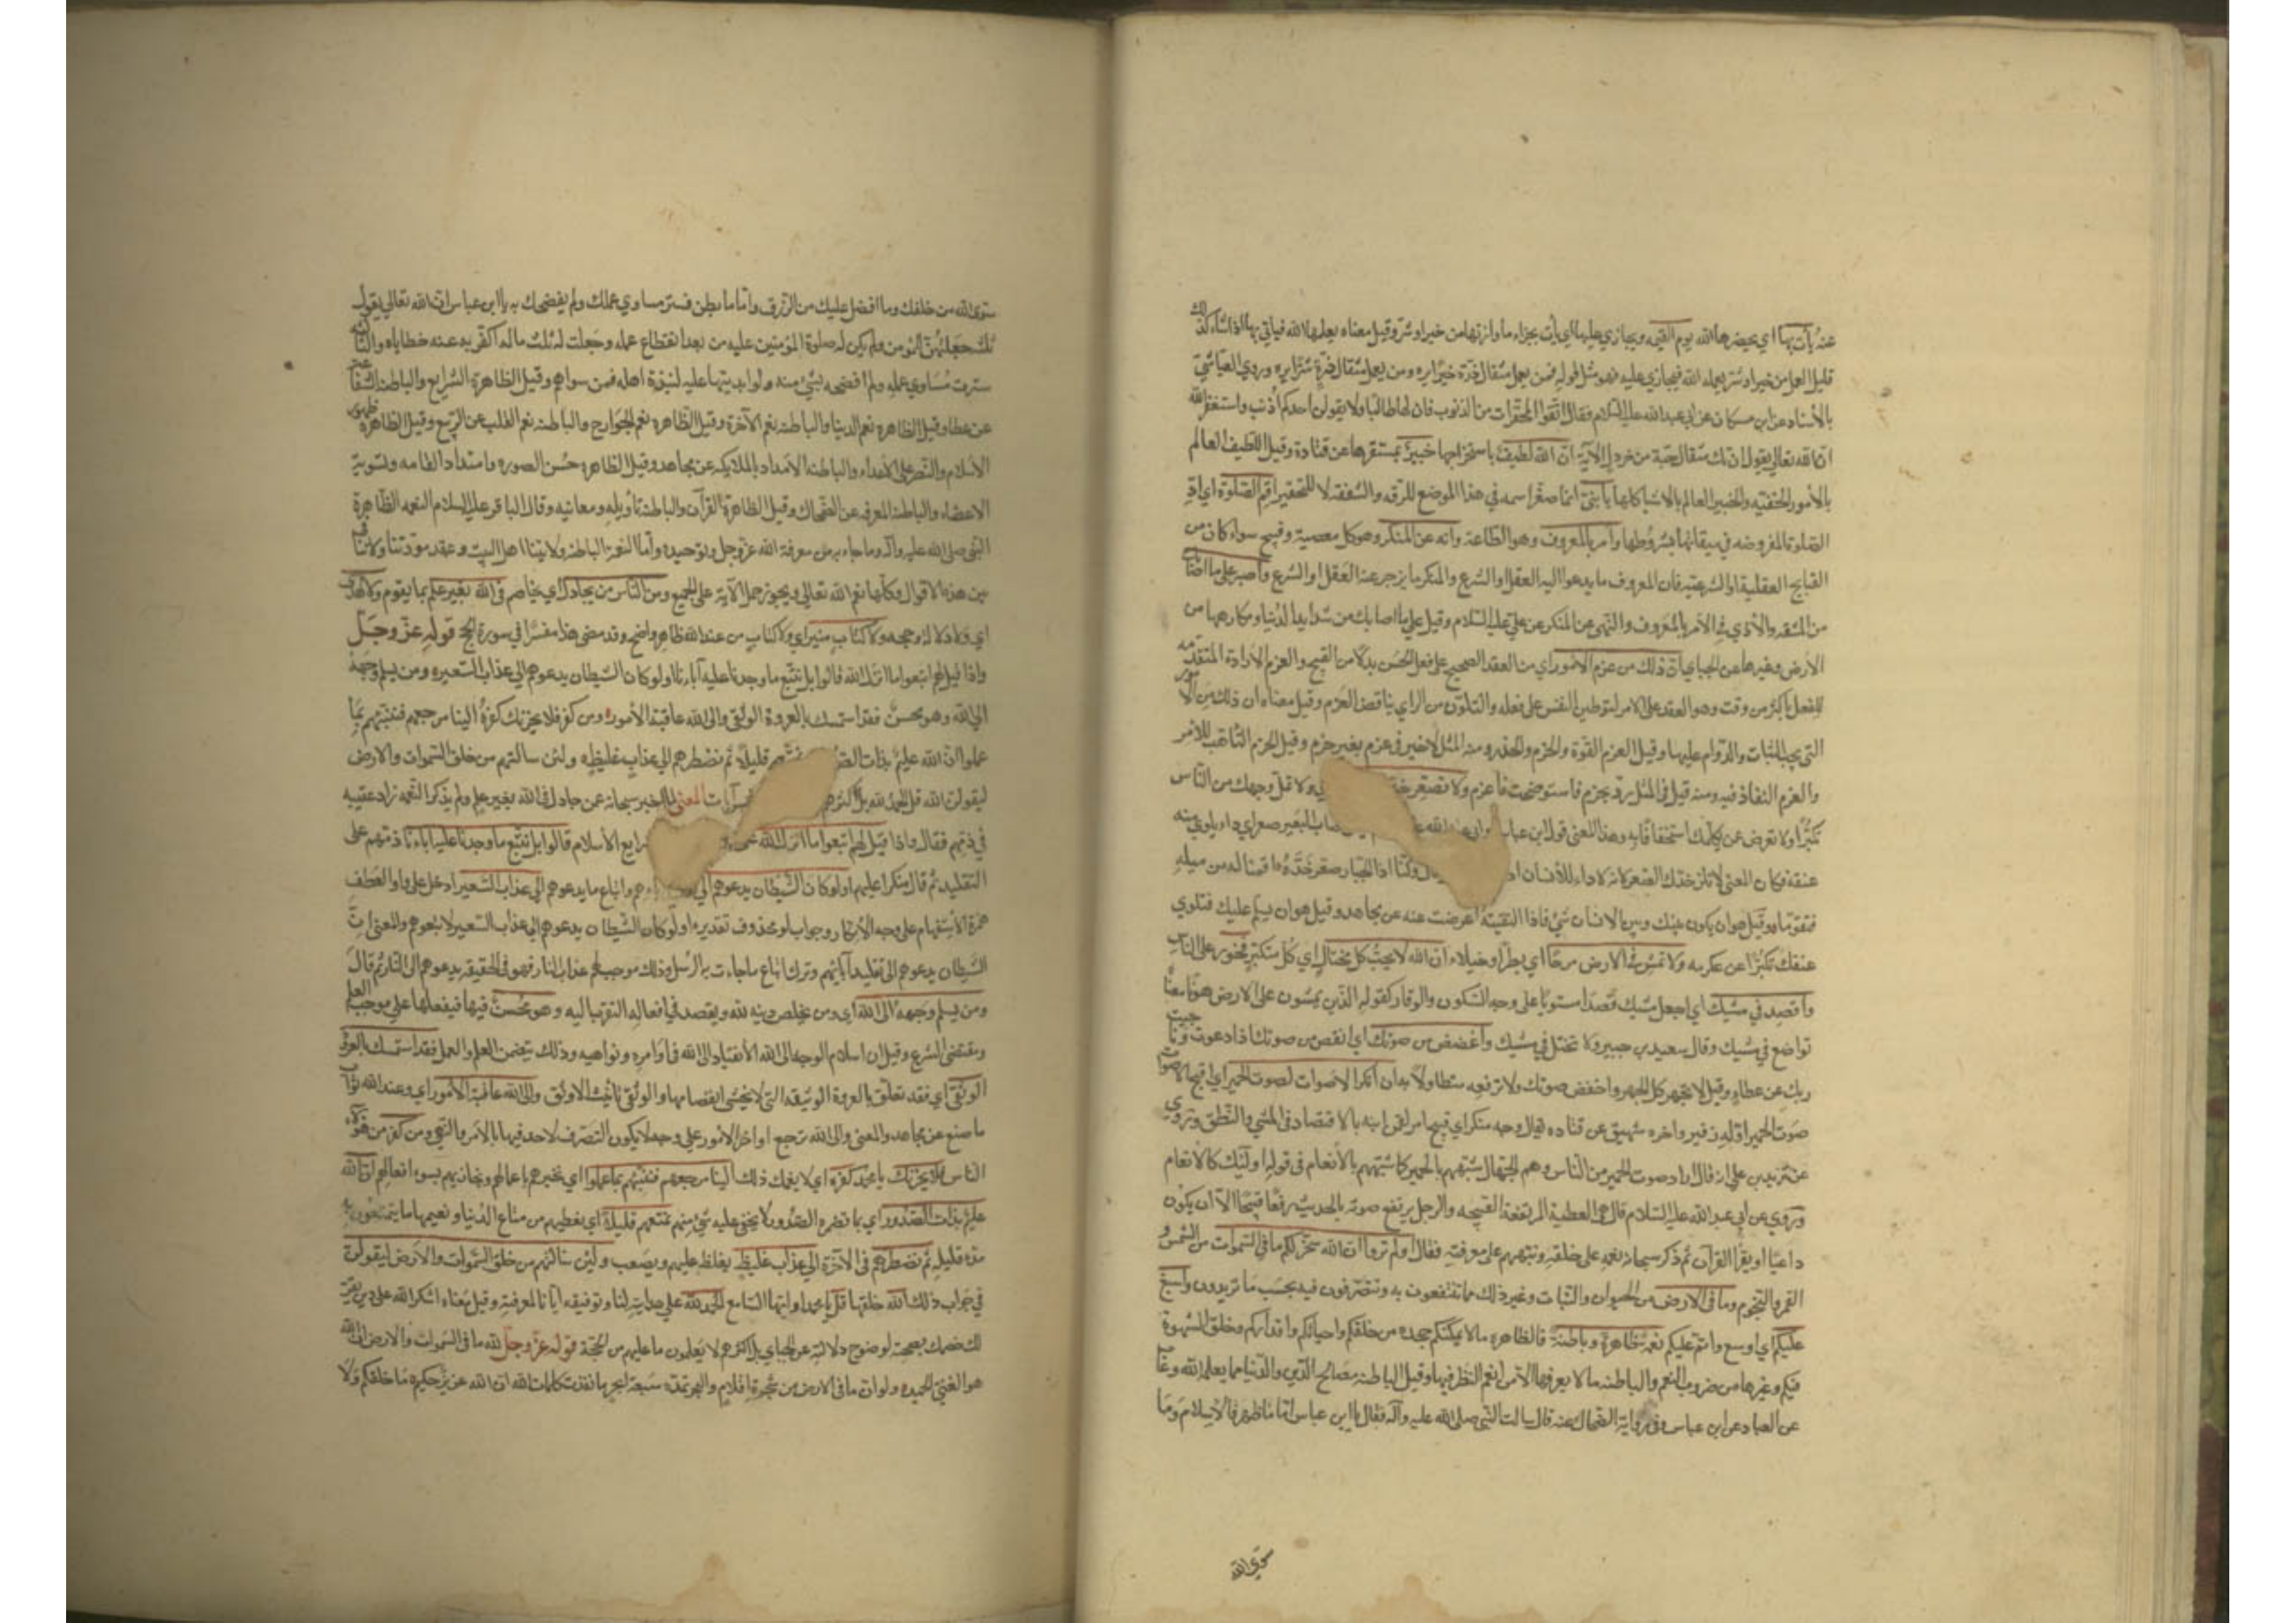 عنه يأت بها اي يحضرها الله يوم القيمه ويجازي عليها اي يأت بجزاء ما وازنها من خير او شر وقيل معناه يعلمها الله فيأتي بها اذا شاء كذلك
قليل العمل من خير او شر يعلمه الله فيجازي عليه فهو مثل قوله فمن يعمل مثقال ذرة خيرا يره ومن يعمل مثقال ذرة شرا يره وروي العياشي
بالأسناد عن ابن مسكان عن ابي عبدالله عليه السلام فقال اتقوا المحقرات من الذنوب فان لها طالبا ولا يقولن احدكم اذنب واستغفر الله
ان الله تعالي يقول ان تك مثقال حبة من خردل الآية ان الله لطيف باستخراجها خبير بمستقرها عن قتادة وقيل اللطيف العالم
بالأمور الخفية والخبير العالم بالاشيا كلها يا بني انما صغر اسمه في هذا الموضع للرقه والشفقه لا للتحقير اقم الصلوة اي ادّ
الصلوة المفروضه في ميقاتها بشروطها وأمر بالمعروف وهو الطاعة وانه عن المنكر وهو كل معصية وقبيح سواء كان من
القبايح العقلية او الشرعية فان المعروف ما يدعوا اليه العقل او الشرع والمنكر ما يزجر عنه العقل او الشرع واصبر علي ما اصابك
من المشقه والأذي في الأمر بالمعروف والنهي عن المنكر عن علي عليه السلام وقيل علي ما اصابك من شدايد الدنيا ومكارهها من
الأرض وغيرها عن الجبايي ان ذلك من عزم الأمور اي من العقد الصحيح علي فعل الحسن بدلا من القبيح والعزم الارادة المتقدمه
للفعل بأكثر من وقت وهو العقد علي الامر لتوطين النفس علي فعله والتلون من الراي يناقض العزم وقيل معناه ان ذلك من الأمور
التي يجب الثبات والدوام عليها وقيل العزم القوة والحزم والحذر ومنه المثل لاخير في عزم بغير حزم وقيل الحزم التأهب للأمر
والعزم النفاذ فيه ومنه قيل في المثل رو بحزم فاستوضحت فاعزم ولا تصعر ولا تمل وجهك من الناس
تكبرا ولا تعرض عن يكلمك استخفافا به وهذا المعني قول ابن عباس وابي عبد الله البعير صعر اي داء يلوي منه
عنقه فكان المعني لا تلزم خدك الصعر لانه لا داء للأنسان وكنا اذا الجبار صعر خده اقمنا له من ميله
فتقوما وقيل هو ان يكون بينك وبين الانسان شئ فاذا لقيته اعرضت عنه عن مجاهد وقيل هو ان يسلم عليك فتلوي
عنقك تكبرا عن عكرمه ولا تمش في الارض مرحا اي بطرا وخيلاء ان الله لا يحب كل مختال اي كل متكبر فخور علي الناس
واقصد في مشيك اي اجعل مشيك قصدا مستويا علي وجه السكون والوقار كقوله الذين يمشون علي الارض هونا
تواضع في مشيك وقال سعيد بن جبير ولا تختل في مشيك واغضض من صوتك اي انقص من صوتك اذا دعوت وناجيت
ربك عن عطاء وقيل لا تجهر كل الجهر واخفض صوتك ولا ترفعه مطاولا به ان انكر الاصوات لصوت الحمير اي اقبح الاصوات
صوت الحمير اوله زفير واخره شهيق عن قتاده يقال وجه منكر اي قبيح امر لقمن ابنه بالاقتصاد في المشي والنطق وروي
عن زيد بن علي انه قال اراد صوت الحمير من الناس وهم الجهال شبههم بالحمير كما شبههم بالأنعام في قوله اولئك كالأنعام
وروي عن ابي عبد الله عليه السلام قال هي العطسة المرتفعة القبيحه والرجل يرفع صوته بالحديث رفعا قبيحا الا ان يكون
داعيا او يقرا القرآن ثم ذكر سبحانه نعمه علي خلقه ونبههم علي معرفته فقال اولم تروا ان الله سخر لكم ما في السموات من الشمس و
القمر والنجوم وما في الارض من الحيوان والنبات وغير ذلك مما تنتفعون به وتتصرفون فيه بحسب ما تريدون واسبغ
عليكم اي اوسع واتم عليكم نعمه ظاهرة وباطنة فالظاهره ما لا يمكنكم جحده من خلقكم واحيائكم واقداركم وخلق الشهوة
فيكم وغيرها من ضروب النعم والباطنه ما لا يعرفها الا من انعم النظر فيها وقيل الباطنه مصالح الدين والدنيا مما يعلمه الله وغاب
عن العباد عن ابن عباس وفي رواية الضحاك عنه قال سالت النبي صلي الله عليه واله فقال يا ابن عباس اما ما ظهر فالأسلام وما
سوي الله
سوي الله من خلقك وما افضل عليك من الرزق واما ما بطن فستر مساوي عملك ولم يفضحك به يا ابن عباس ان الله تعالي يقول
ثلث جعلتهن للمؤمن ولم يكن له صلوة المؤمنين عليه من بعد انقطاع عمله وجعلت له ثلث ماله اكفر به عنه خطاياه والثالثة
سترت مساوي عمله ولم افضحه بشئ منه ولو ابديتها عليه لنبذه اهله فمن سواهم وقيل الظاهرة الشرايع والباطنه الشفاعة
عن عطا وقيل الظاهره نعم الدنيا والباطنه نعم الآخرة وقيل الظاهره نعم الجوارح والباطنه نعم القلب عن الربيع وقيل الظاهرة ظهور
الاسلام والنصر علي الاعداء والباطنه الامداد بالملايكه عن مجاهد وقيل الظاهره حسن الصوره وامتداد القامه وتسوية
الاعضاء والباطنه المعرفه عن الضحاك وقيل الظاهرة القرآن والباطنه تأويله ومعانيه وقال الباقر عليه السلام النعمه الظاهرة
النبي صلي الله عليه واله وما جاء به من معرفة الله عز وجل وتوحيده واما النعمة الباطنه ولايتنا اهل البيت وعقد مودتنا ولا تنافي
بين هذه الاقوال وكلها نعم الله تعالي ويجوز حمل الآية علي الجميع ومن الناس من يجادل اي يخاصم في الله بغير علم بما يقوم ولا هدي
اي ولا دلالة وحجه ولا كتاب منير اي ولا كتاب من عند الله ظاهر واضح وقد مضي هذا مفسرا في سورة الحج قوله عز وجل
واذا قيل لهم اتبعوا ما انزل الله قالوا بل نتبع ما وجدنا عليه آباءنا اولو كان الشيطان يدعوهم الي عذاب السعير ومن يسلم وجهه
الي الله وهو محسن فقد استمسك بالعروة الوثقي والي الله عاقبة الأمور ومن كفر فلا يحزنك كفره الينا مرجعهم فننبئهم بما
عملوا ان الله عليم بذات قليلا ثم نضطرهم الي عذاب غليظ ولئن سالتهم من خلق السموات والارض
ليقولن الله قل الحمد لله بل آيات المعني لما اخبر سبحانه عن جادل في الله بغير علم ولم يذكر النعمه زاد عقيبه
في ذمهم فقال واذا قيل لهم اتبعوا ما انزل الله علي الاسلام قالوا بل نتبع ما وجدنا عليه اباءنا ذمهم علي
التقليد ثم قال منكرا عليهم اولو كان الشيطان يدعوهم الي واتباع ما يدعوهم الي عذاب السعير ادخل علي واو العطف
همزة الاستفهام علي وجه الأنكار وجواب لو محذوف تقديره اولو كان الشيطان يدعوهم الي عذاب السعير لاتبعوهم والمعني ان
الشيطان يدعوهم الي تقليد آبائهم وترك اتباع ما جاءت به الرسل وذلك موجب لهم عذاب النار فهو في الحقيقه يدعوهم الي النار ثم قال
ومن يسلم وجهه الي الله اي ومن يخلص دينه لله ويقصد في افعاله التقرب اليه وهو محسن فيها فيفعلها علي موجب العلم
ومقتضي الشرع وقيل ان اسلام الوجه الي الله الأنقياد الي الله في اوامره ونواهيه وذلك يتضمن العلم والعمل فقد استمسك بالعروة
الوثقي اي فقد تعلق بالعروة الوثيقه التي لا يخشي انفصامها والوثقي تأنيث الاوثق والي الله عاقبة الأمور اي وعند الله ثواب
ما صنع عن مجاهد والمعني والي الله ترجع اواخر الامور علي وجه لا يكون التصرف لاحد فيها بالأمر والنهي ومن كفر من هؤلاء
الناس فلا يحزنك يا محمد كفره اي لا يغمك ذلك الينا مرجعهم فننبئهم بما عملوا اي نخبرهم باعمالهم ونجازيهم بسوء افعالهم ان الله
عليم بذات الصدور اي بما تضمره الصدور لا يخفي عليه شئ منهم نمتعهم قليلا اي نعطيهم من متاع الدنيا ونعيمها ما يتمتعون به
مدة قليلة ثم نضطرهم في الآخرة الي عذاب غليظ يغلظ عليهم ويصعب ولئن سالتهم من خلق السموات والأرض ليقولن
في جواب ذلك الله خلقها قل يا محمد او ايها السامع الحمد لله علي هدايته لنا وتوفيقه ايانا لمعرفته وقيل معناه اشكر الله علي دين يقر
لك خصمك بصحته لوضوح دلالته عن الجبايي بل اكثرهم لا يعلمون ما عليهم من الحجة قوله عز وجل لله ما في السموات والارض ان الله
هو الغني الحميد ولو ان ما في الارض من شجرة اقلام والبحر يمده سبعة ابحر ما نفدت كلمات الله ان الله عزيز حكيم ما خلقكم ولا